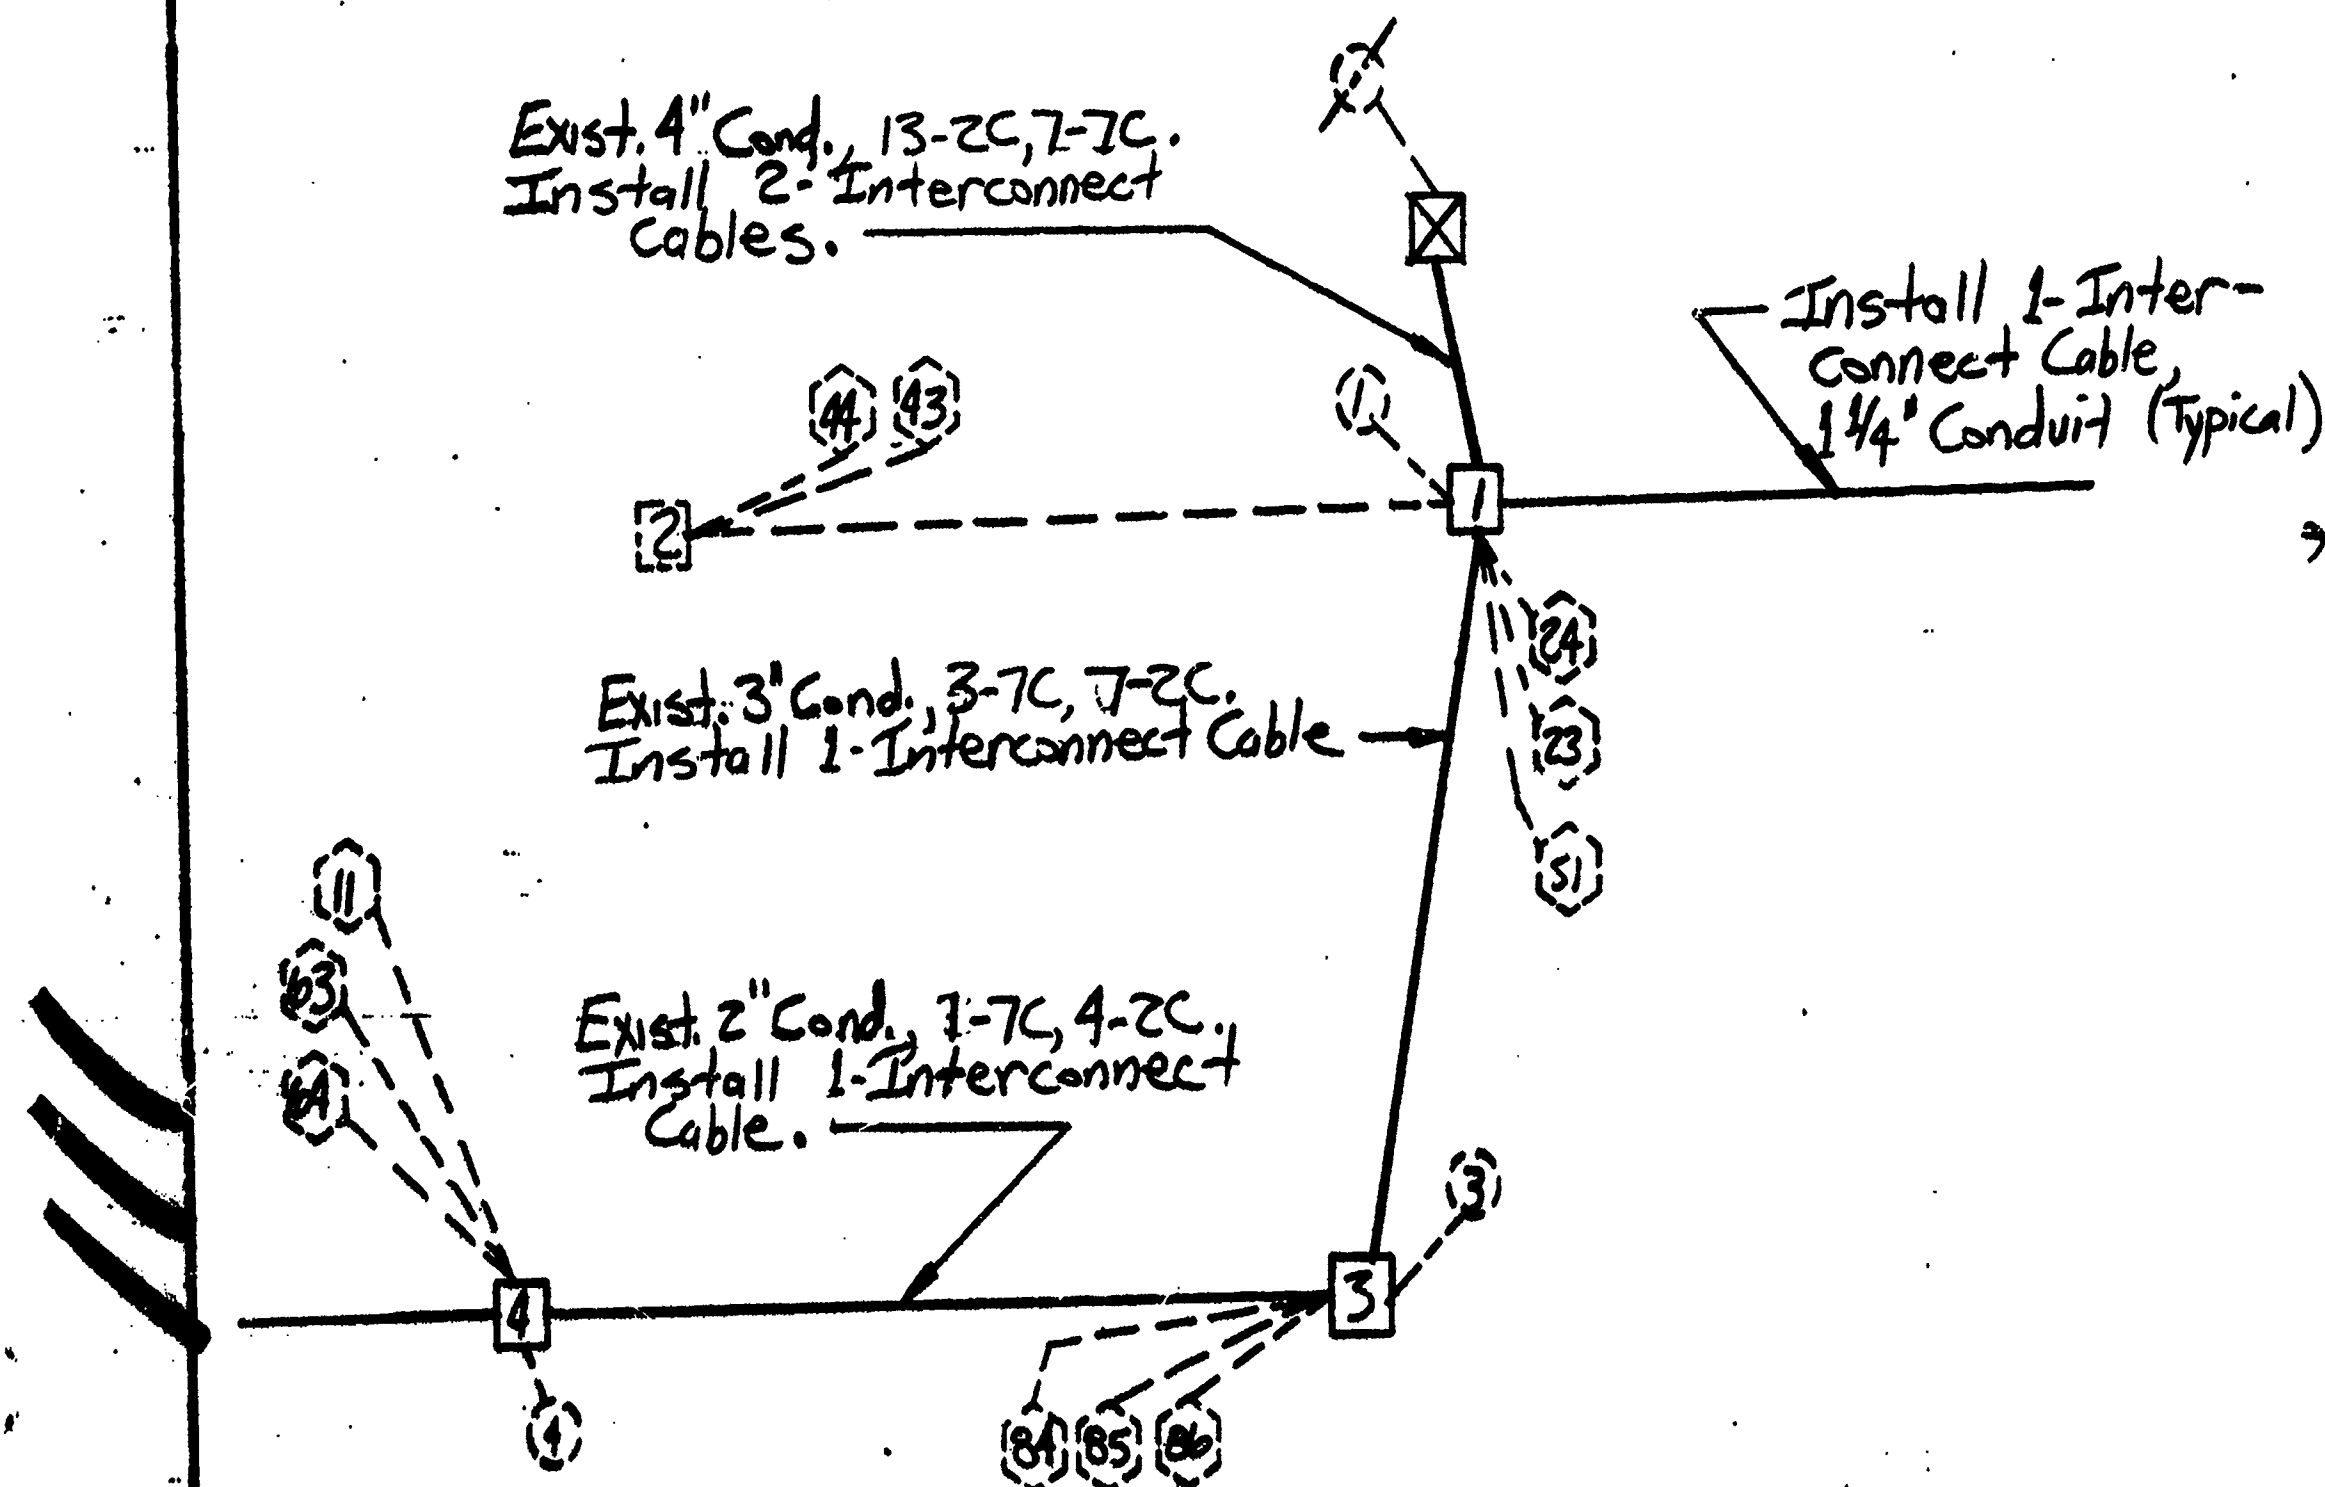 Exist. 4" Cond., 13-2C, 7-7C.
Install 2-Interconnect
Cables.
Install 1-Inter-
connect Cable,
1 1/4" Conduit (Typical)
44
43
1
2
1
24
Exist. 3" Cond., 3-7C, 7-2C.
Install 1-Interconnect Cable
23
51
11
63
64
Exist. 2" Cond., 1-7C, 4-2C.,
Install 1-Interconnect
Cable.
3
4
3
4
84
85
86